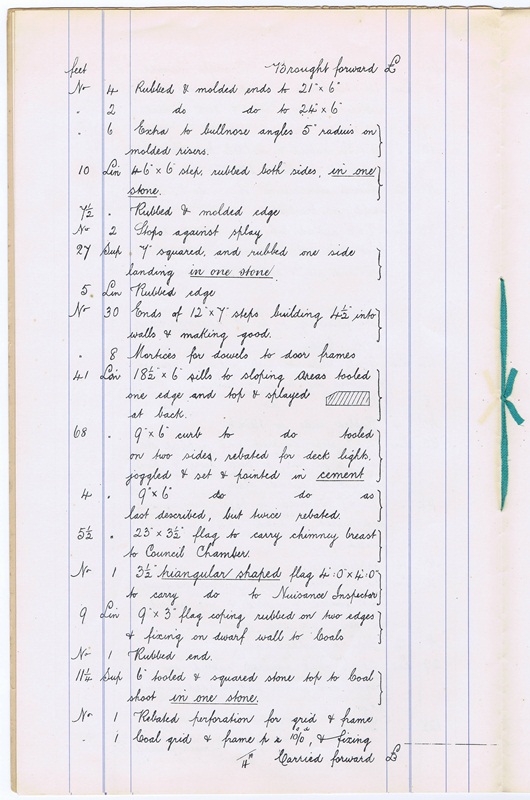 feet Brought forward £
No 4 Rubbed & molded ends to 21" x 6"
" 2 do do to 24" x 6"
" 6 Extra to bullnose angles 5" radius on
molded risers.
10 Lin 46" x 6" step, rubbed both sides, in one
stone.
7½ " Rubbed & molded edge
No 2 Stops against splay
27 Sup 7" squared, and rubbed one side
landing in one stone
5 Lin Rubbed edge
No 30 Ends of 12" x 7" steps building 4½" into
walls & making good.
" 8 Mortices for dowels to door frames
41 Lin 18½" x 6" sills to sloping areas tooled
one edge and top & splayed
at back.
68 " 9" x 6" curb to do tooled
on two sides, rebated for deck lights,
joggled & set & pointed in cement
4 " 9" x 6" do do as
last described, but twice rebated.
5½ " 23" x 3½" flag to carry chimney breast
to Council Chamber.
No 1 3½" triangular shaped flag 4':0" x 4':0"
to carry do to Nuisance Inspector
9 Lin 9" x 3" flag coping rubbed on two edges
& fixing on dwarf wall to Coals
No 1 Rubbed end.
11¼ Sup 6" tooled & squared stone top to Coal
shoot in one stone.
No 1 Rebated perforation for grid & frame
" 1 Coal grid & frame p c 10/0, & fixing
Carried forward £